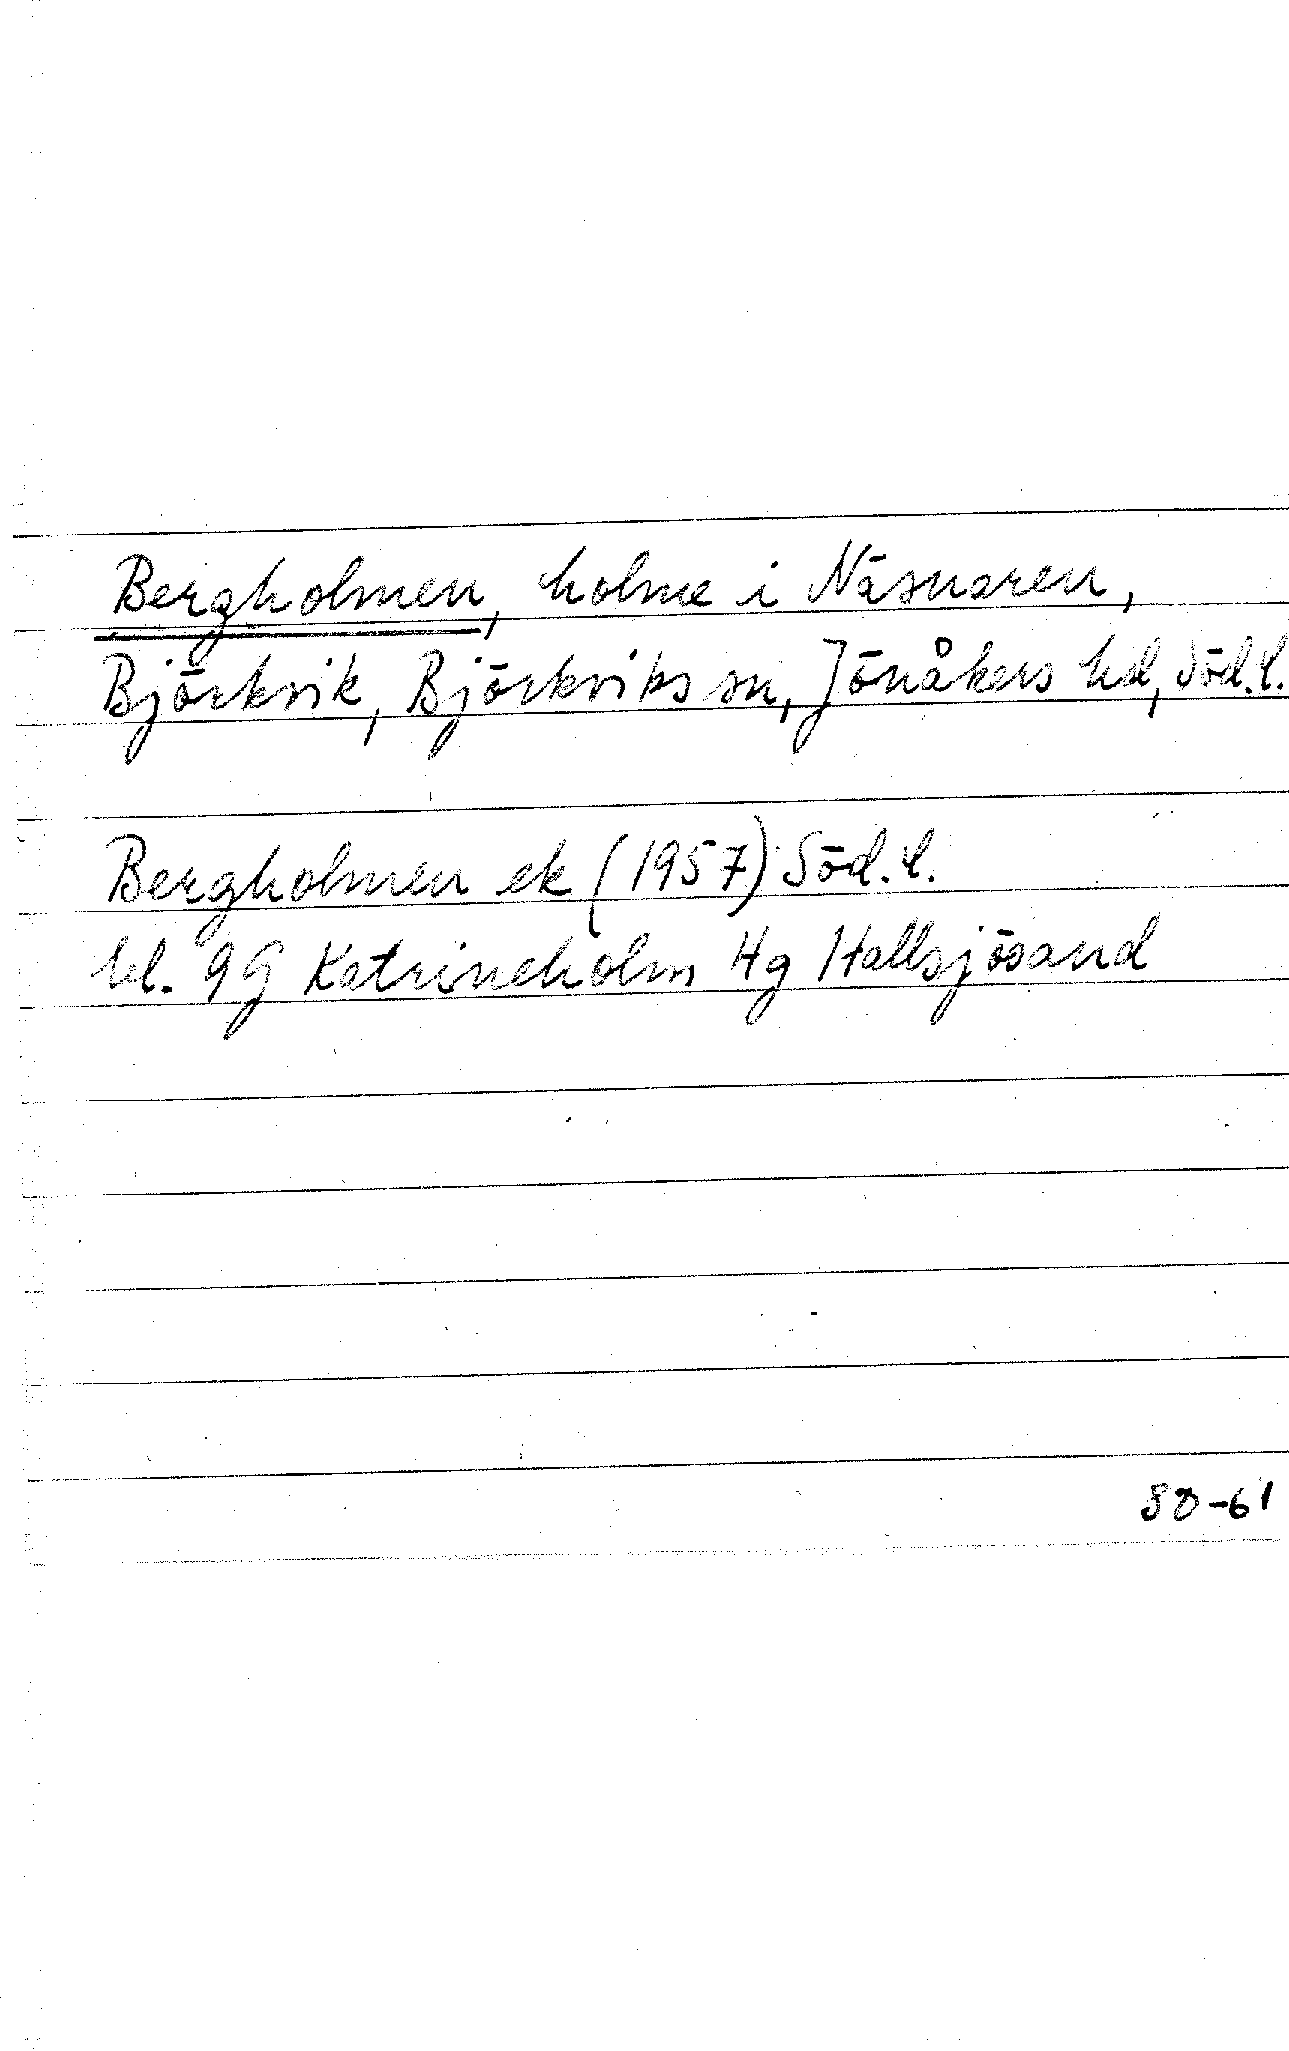 Bergholmen, holme i Näsnaren,
Björkvik, Björkviks sn, Jönåkers hd, Söd.l.
Bergholmen ek (1957) Söd.l.
bl. 9G Katrineholm 4g Hallsjösand
80-61